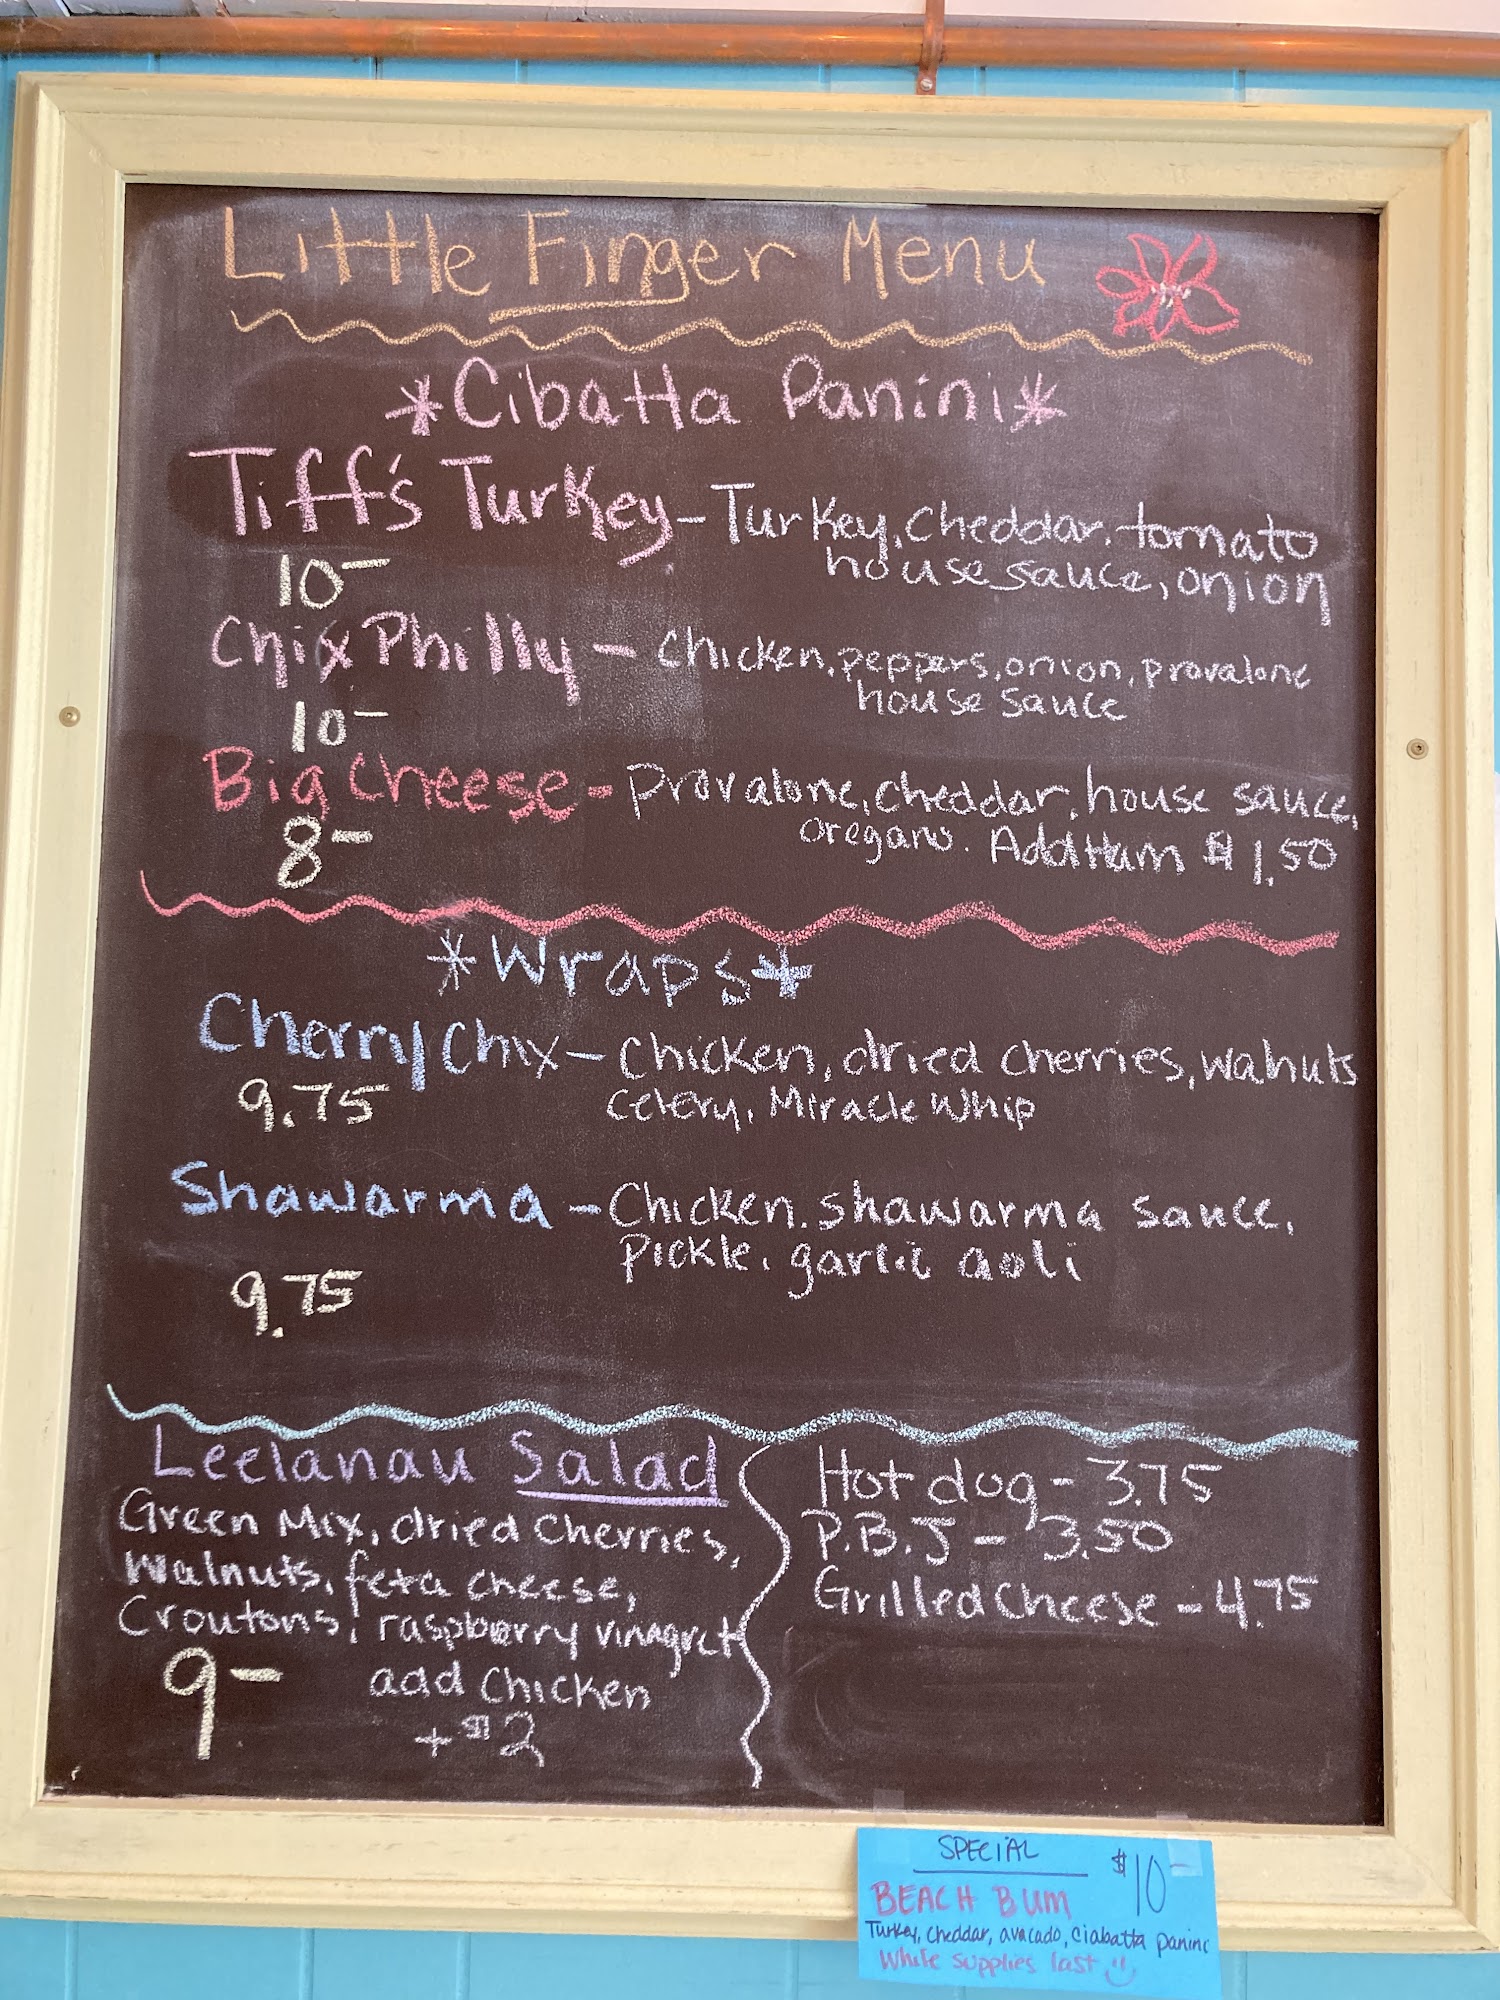 Little Finger Menu
*Cibatta Panini*
Tiff's Turkey - Turkey, Cheddar, tomato
house sauce, onion
10-
Chix Philly - Chicken, peppers, onion, provalone
house sauce
10-
Big Cheese - Provalone, cheddar, house sauce,
oregano. Add Ham $1.50
8-
*Wraps*
Cherry Chix - Chicken, dried cherries, walnuts
celery, Miracle Whip
9.75
Shawarma - Chicken, shawarma sauce,
Pickle, garlic aoli
9.75
Leelanau Salad
Green Mix, dried Cherries,
Walnuts, feta cheese,
Croutons, raspberry vinagret
9-
add Chicken
+ $2
Hot dog - 3.75
P.B.J - 3.50
Grilled Cheese - 4.75
SPECIAL
$10-
BEACH BUM
Turkey, cheddar, avacado, ciabatta panini
While supplies last